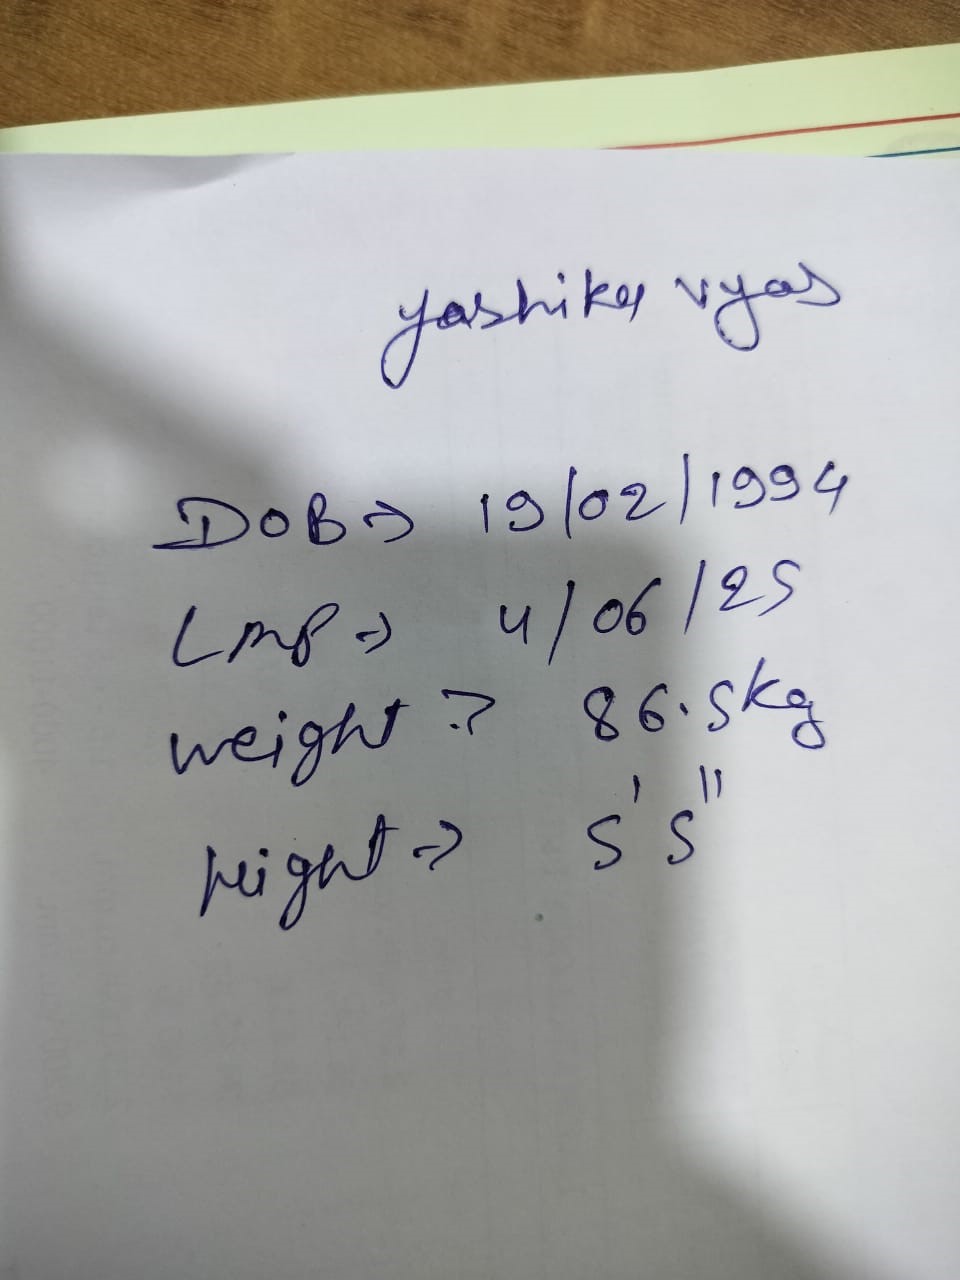 yashika vyas
DOB → 19/02/1994
LMP → 4/06/25
weight → 86.5kg
height → 5' 5"